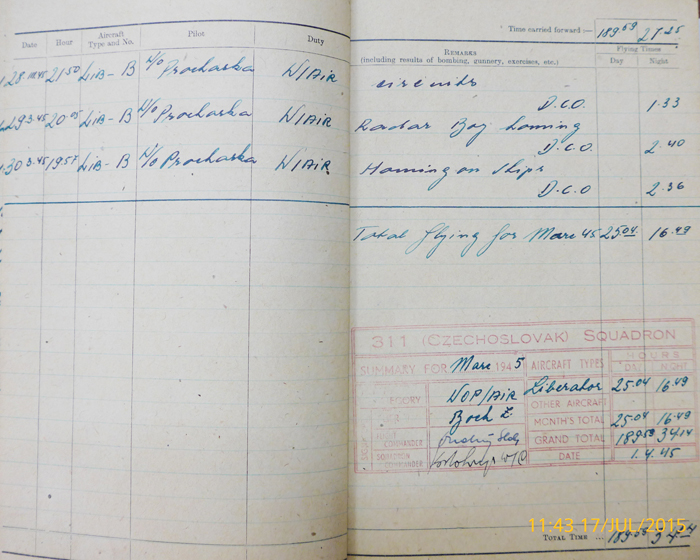 Time carried forward :— 189.59 27.25
Date Hour Aircraft Type and No. Pilot Duty
Remarks (including results of bombing, gunnery, exercises, etc.) Flying Times Day Night
28. 21.50 Lib - B W/o Prochaska W/Air
circuits
D.C.O. 1.33
29.3.45 20.05 Lib - B W/o Prochaska W/Air
Radar Boy homing
D.C.O. 2.40
30.3.45 19.57 Lib - B W/o Prochaska W/Air
Homing on ships
D.C.O 2.36
Total flying for Marc 45 25.04 16.49
311 (CZECHOSLOVAK) SQUADRON
SUMMARY FOR Marc 1945 AIRCRAFT TYPES HOURS DAY NIGHT
WOP/AIR Liberator 25.04 16.49
OTHER AIRCRAFT
Boch Z. MONTH'S TOTAL 25.04 16.49
COMMANDER GRAND TOTAL 189.59 34.14
SQUADRON COMMANDER W/C DATE 1.4.45
11:43 17/JUL/2015
Total Time ...